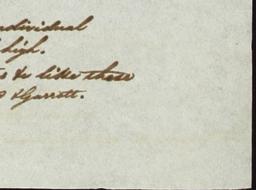 individual
high.
to & like these
& Garrett.